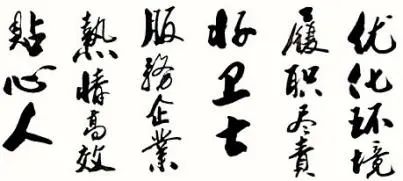 优化环境
履职尽責
好卫士
服務企業
熱情高效
贴心人